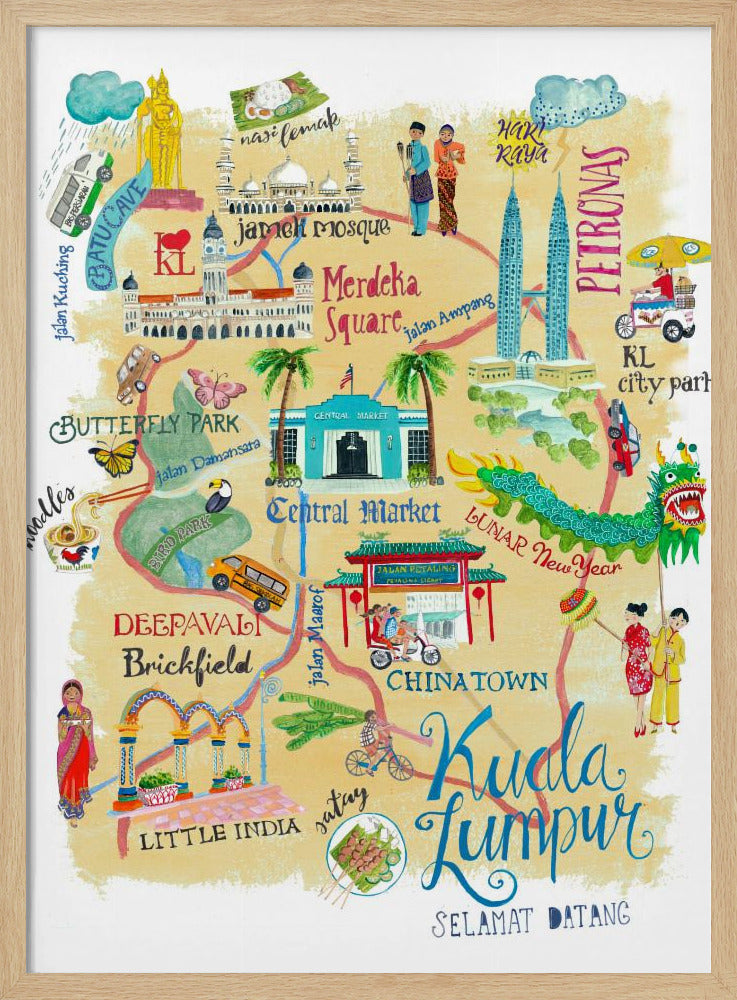 nasi lemak
HARI
RAYA
BATU CAVE
Jalan Kuching
I
KL
Jameh mosque
PETRONAS
Merdeka
Square
Jalan Ampang
KL
city park
BUTTERFLY PARK
Jalan Damansara
CENTRAL MARKET
noodles
BIRD PARK
Central Market
LUNAR New Year
JALAN PETALING
DEEPAVALI
Brickfield
Jalan Maarof
CHINATOWN
Kuala
Lumpur
LITTLE INDIA
satay
SELAMAT DATANG